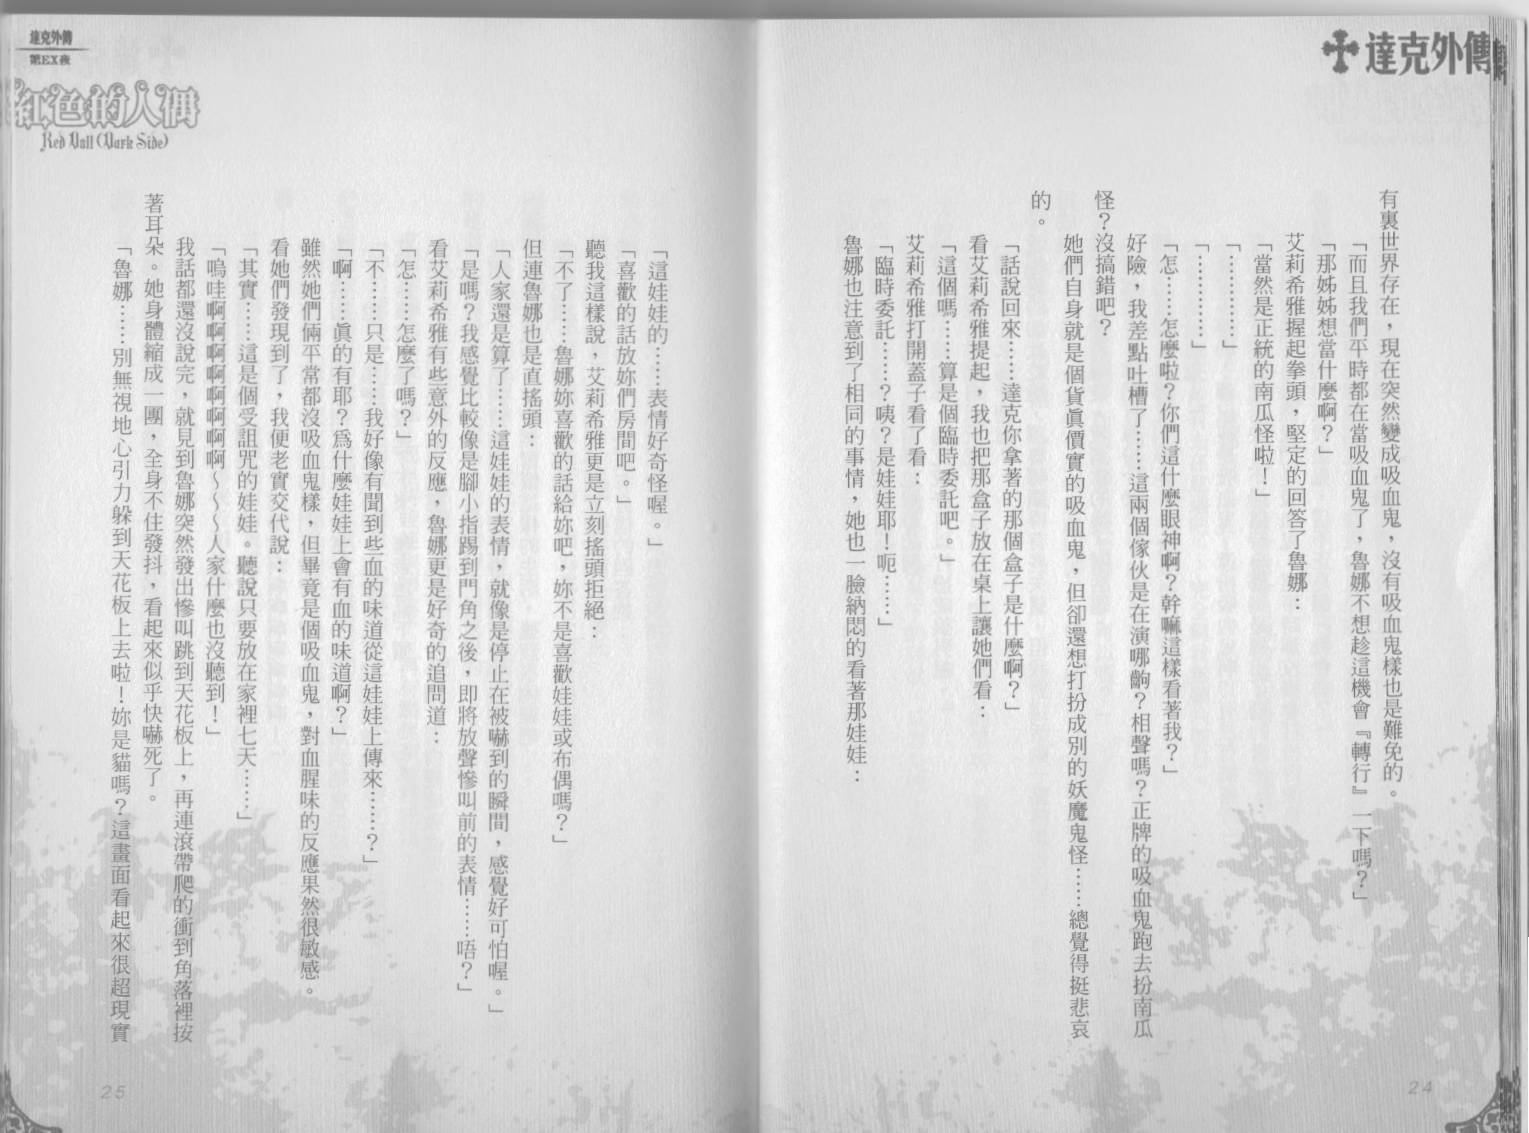 達克外傳
有裏世界存在，現在突然變成吸血鬼，沒有吸血鬼樣也是難免的。
「而且我們平時都在當吸血鬼了，魯娜不想趁這機會『轉行』一下嗎？」
「那姊姊想當什麼啊？」
艾莉希雅握起拳頭，堅定的回答了魯娜：
「當然是正統的南瓜怪啦！」
「…………」
「…………」
「怎……怎麼啦？你們這什麼眼神啊？幹嘛這樣看著我？」
好險，我差點吐槽了……這兩個傢伙是在演哪齣？相聲嗎？正牌的吸血鬼跑去扮南瓜
怪？沒搞錯吧？
她們自身就是個貨真價實的吸血鬼，但卻還想打扮成別的妖魔鬼怪……總覺得挺悲哀
的。
「話說回來……達克你拿著的那個盒子是什麼啊？」
看艾莉希雅提起，我也把那盒子放在桌上讓她們看：
「這個嗎……算是個臨時委託吧。」
艾莉希雅打開蓋子看了看：
「臨時委託……？咦？是娃娃耶！呃……」
魯娜也注意到了相同的事情，她也一臉納悶的看著那娃娃：
24
達克外傳
第EX夜
紅色的人偶
Red Doll (Dark Side)
「這娃娃的……表情好奇怪喔。」
「喜歡的話放妳們房間吧。」
聽我這樣說，艾莉希雅更是立刻搖頭拒絕：
「不了……魯娜妳喜歡的話給妳吧，妳不是喜歡娃娃或布偶嗎？」
但連魯娜也是直搖頭：
「人家還是算了……這娃娃的表情，就像是停止在被嚇到的瞬間，感覺好可怕喔。」
「是嗎？我感覺比較像是腳小指踢到門角之後，即將放聲慘叫前的表情……唔？」
看艾莉希雅有些意外的反應，魯娜更是好奇的追問道：
「怎……怎麼了嗎？」
「不……只是……我好像有聞到些血的味道從這娃娃上傳來……？」
「啊……真的有耶？為什麼娃娃上會有血的味道啊？」
雖然她們倆平常都沒吸血鬼樣，但畢竟是個吸血鬼，對血腥味的反應果然很敏感。
看她們發現到了，我便老實交代說：
「其實……這是個受詛咒的娃娃。聽說只要放在家裡七天……」
「嗚哇啊啊啊啊啊啊啊啊～～～人家什麼也沒聽到！」
我話都還沒說完，就見到魯娜突然發出慘叫跳到天花板上，再連滾帶爬的衝到角落裡按
著耳朵。她身體縮成一團，全身不住發抖，看起來似乎快嚇死了。
「魯娜……別無視地心引力躲到天花板上去啦！妳是貓嗎？這畫面看起來很超現實
25